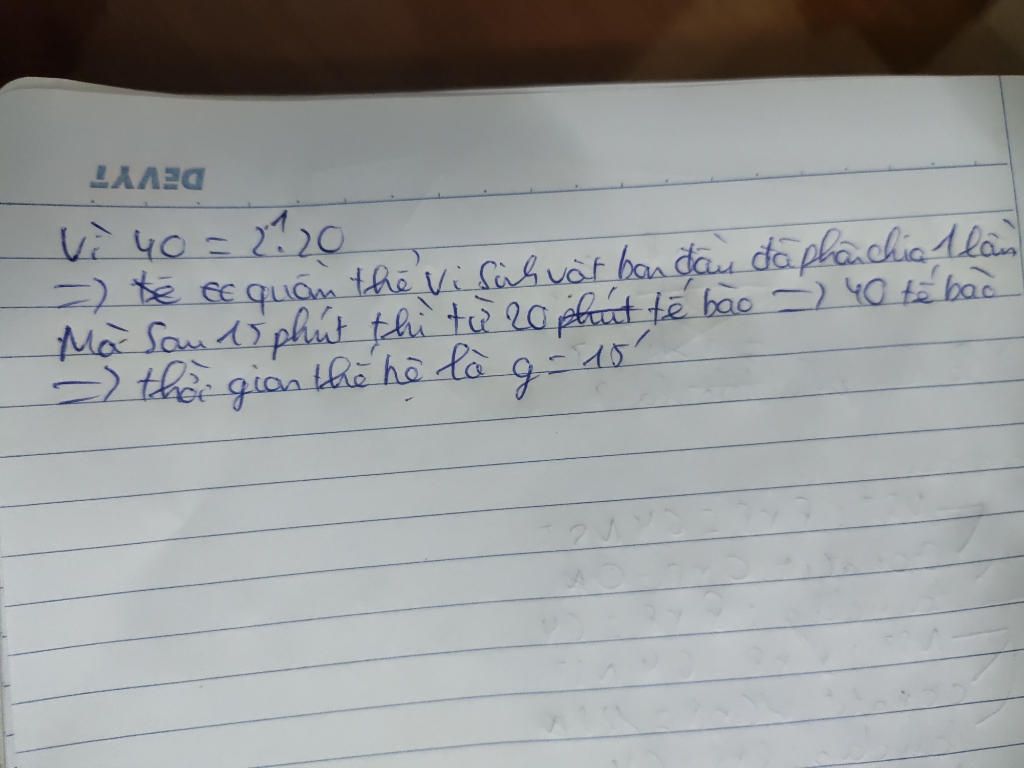 DEVYT
Vì 40 = 2¹.20
=) quần thể vi sinh vật ban đầu đã phân chia 1 lần
Mà sau 15 phút thì từ 20 phút tế bào => 40 tế bào
=) thời gian thế hệ là g = 15'